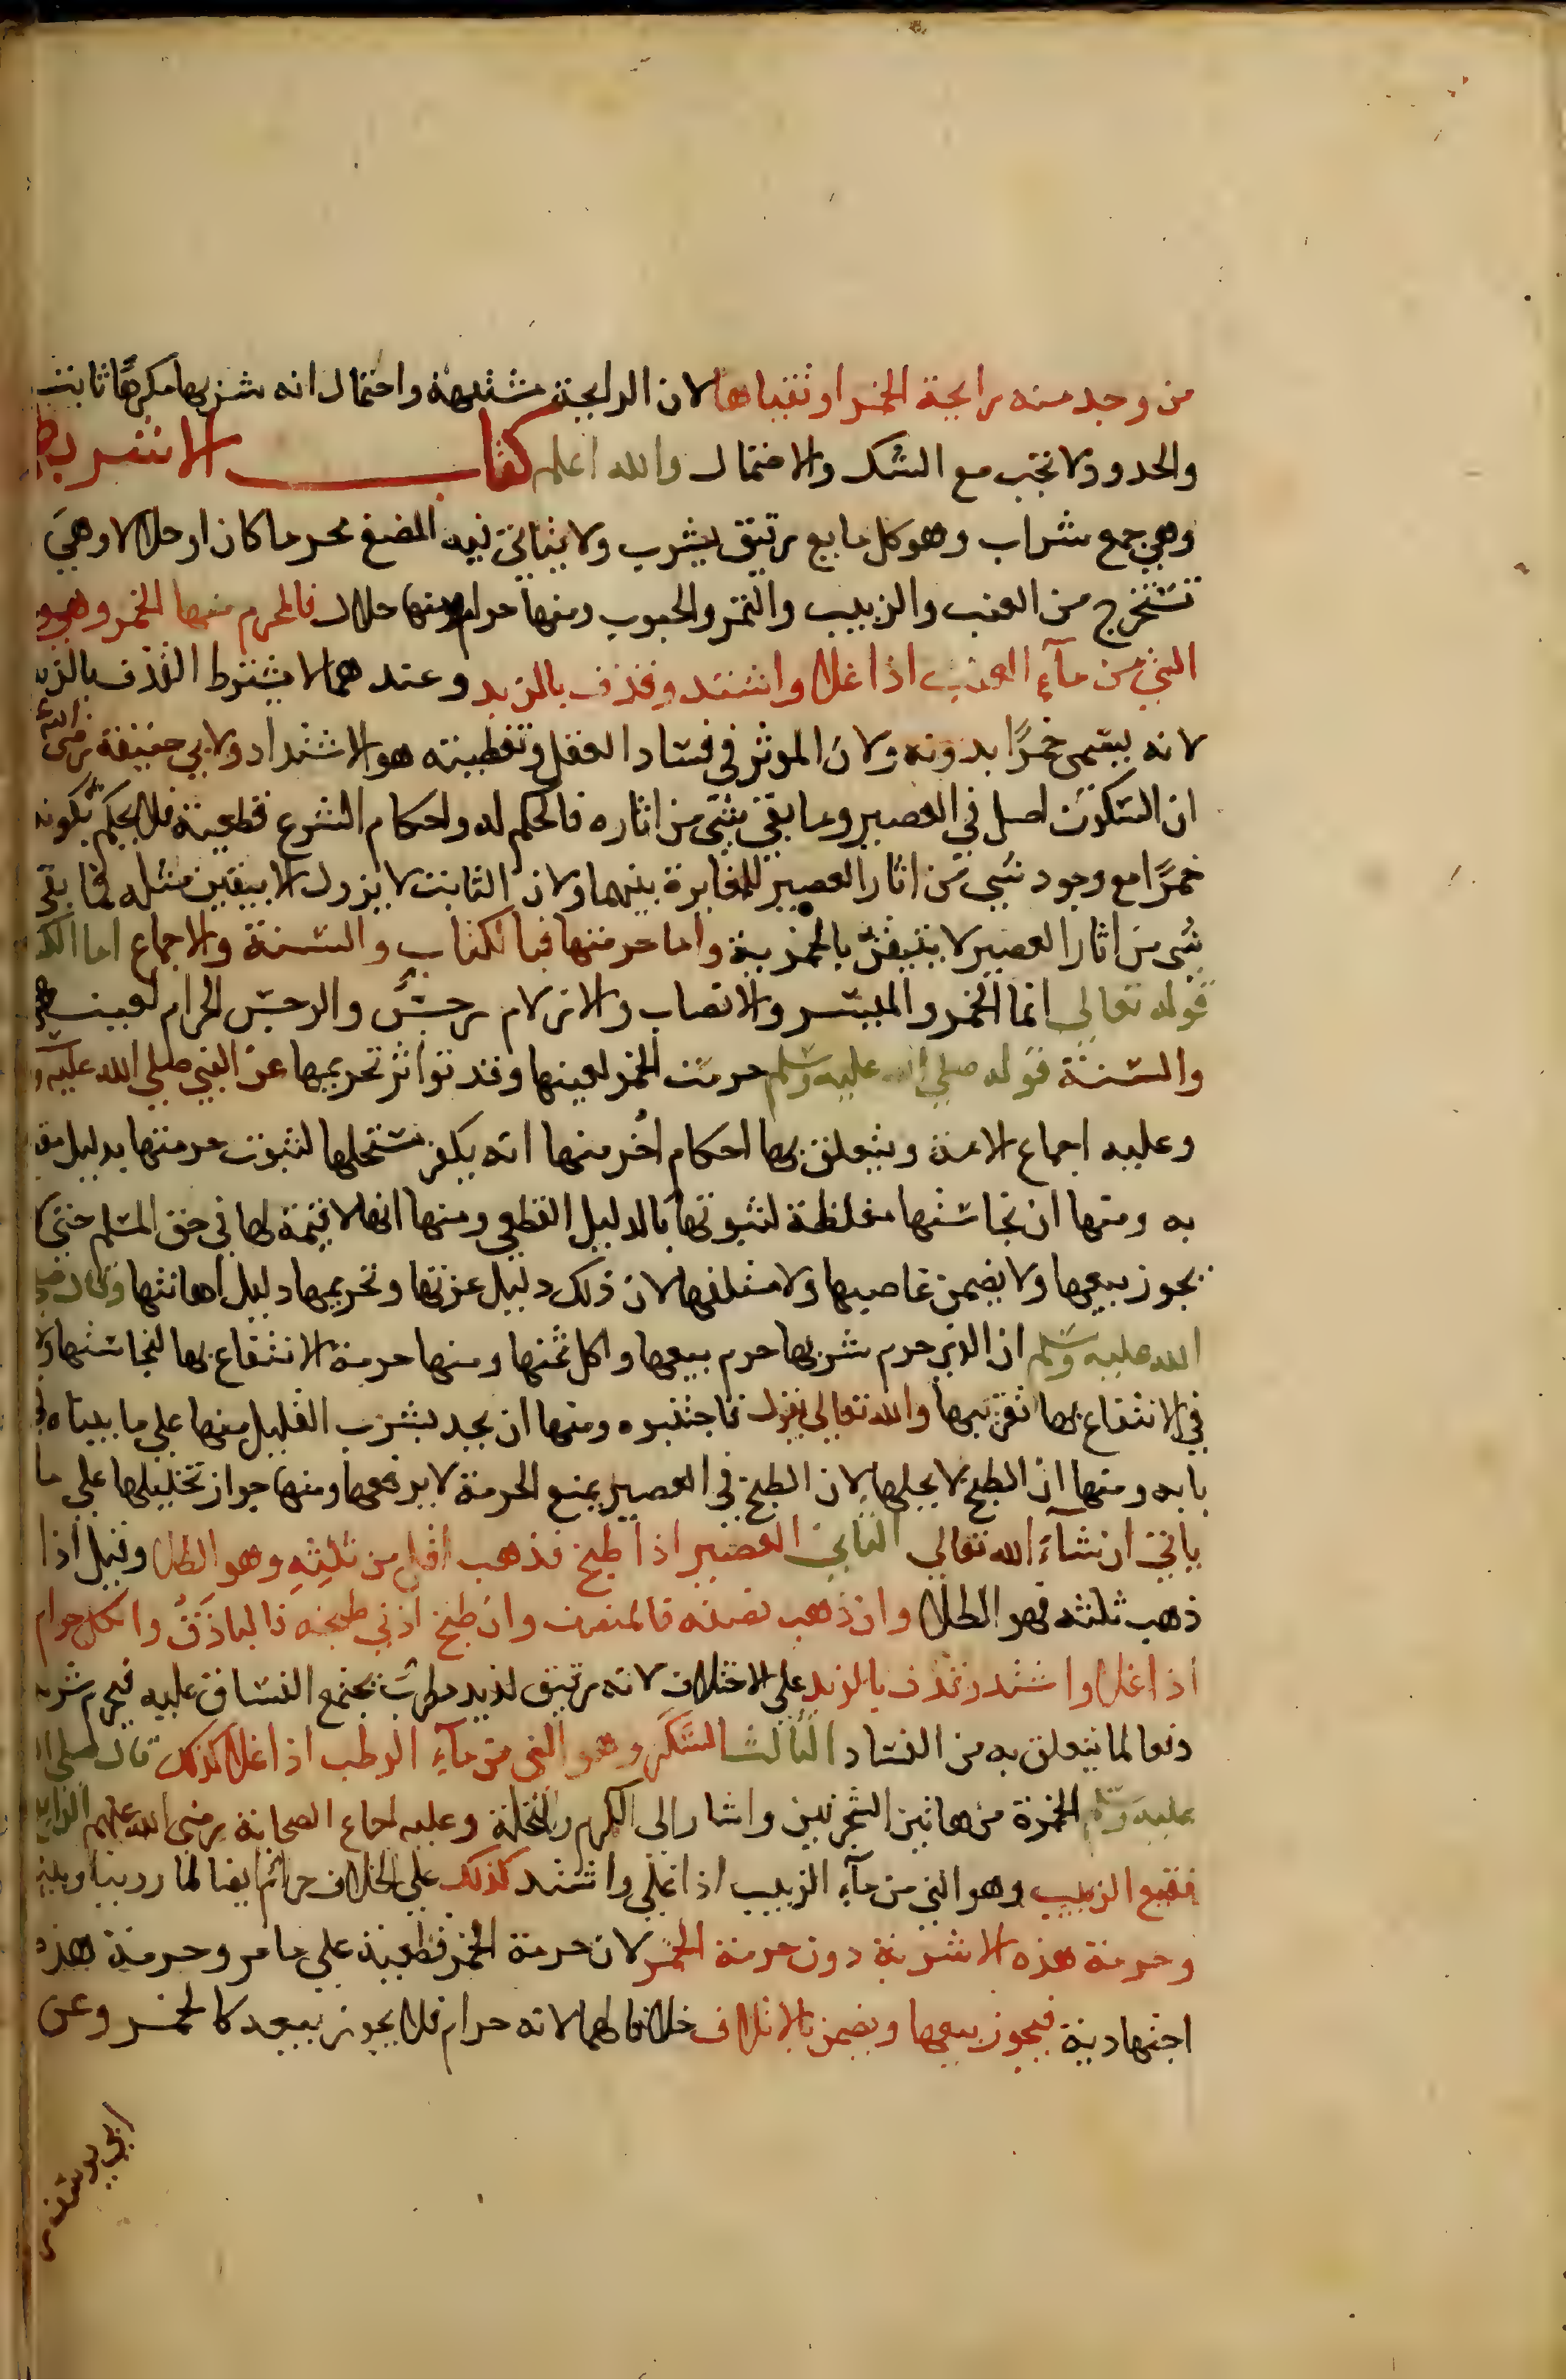 من وجد منه رايحة الخمر او تقياها لان الرايحة مشتبهة واحتمال انه شربها مكرها ثابت
والحدود لا تجب مع الشك والاحتمال والله اعلم كتاب الاشربة
وهي جمع شراب وهو كل مايع رقيق يشرب ولا يتاتى فيه المضغ محرما كان او حلالا وهي
تستخرج من العنب والزبيب والتمر والحبوب ومنها حرام ومنها حلال فالمحرم منها الخمر وهي
الني من مآء العنب اذا غلا واشتد وقذف بالزبد وعندهما لا يشترط القذف بالزبد
لانه يسمى خمرًا بدونه ولان الموثر في فساد العقل وتغطيته هو الاشتداد ولابي حنيفة رضى الله
ان السكون اصل في العصير وما بقي شي من اثاره فالحكم له واحكام الشرع قطعية فلا يحكم بكونه
خمرًا مع وجود شي من اثار العصير للمغايرة بينهما ولان الثابت لا يزول الا بيقين مثله فما بقي
شي من اثار العصير لا يتيقن بالخمرية واما حرمتها فبالكتاب والسنة والاجماع اما الكتاب
قوله تعالي انما الخمر والميسر والانصاب والازلام رجس والرجس الحرام لعينه
والسنة قوله صلي الله عليه وسلم حرمت الخمر لعينها وقد تواتر تحريمها عن النبي صلي الله عليه
وعليه اجماع الامة ويتعلق بها احكام اخر منها انه يكفر مستحلها لثبوت حرمتها بدليل مقطوع
به ومنها ان نجاستها مغلظة لثبوتها بالدليل القطعي ومنها انها لا قيمة لها في حق المسلم حتى لا
يجوز بيعها ولا يضمن غاصبها ولا متلفها لان ذلك دليل عزتها وتحريمها دليل اهانتها وقال صلي
الله عليه وسلم ان الذي حرم شربها حرم بيعها واكل ثمنها ومنها حرمة الانتفاع بها لنجاستها ولان
في الانتفاع بها تقريبها والله تعالي يقول فاجتنبوه ومنها ان يحد بشرب القليل منها علي ما بيناه في
بابه ومنها ان الطبخ لا يحلها لان الطبخ في العصير يمنع الحرمة لا يرفعها ومنها جواز تخليلها علي ما
ياتي ان شآء الله تعالي الثاني العصير اذا طبخ فذهب اقل من ثلثيه وهو الطلا وقيل اذا
ذهب ثلثه فهو الطلا وان ذهب نصفه فالمنصف وان طبخ ادني طبخه فالباذق والكل حرام
اذا غلا واشتد وقذف بالزبد علي الاختلاف لانه رقيق لذيذ مطرب يجتمع الفساق عليه فيحرم شربه
دفعا لما يتعلق به من الفساد الثالث السكر وهو الني من مآء الرطب اذا غلا كذلك قال صلي الله
عليه وسلم الخمرة من هاتين الشجرتين واشار الى الكرم والنخلة وعليه اجماع الصحابة رضي الله عنهم الرابع
نقيع الزبيب وهو الني من مآء الزبيب اذا غلي واشتد كذلك علي الخلاف حرام ايضا لما روينا وبينا
وحرمة هذه الاشربة دون حرمة الخمر لان حرمة الخمر قطعية علي ما مر وحرمة هذه
اجتهادية فيجوز بيعها ويضمن بالاتلاف خلافا لهما لانه حرام فلا يجوز بيعه كالخمر وعن
ابي يوسف